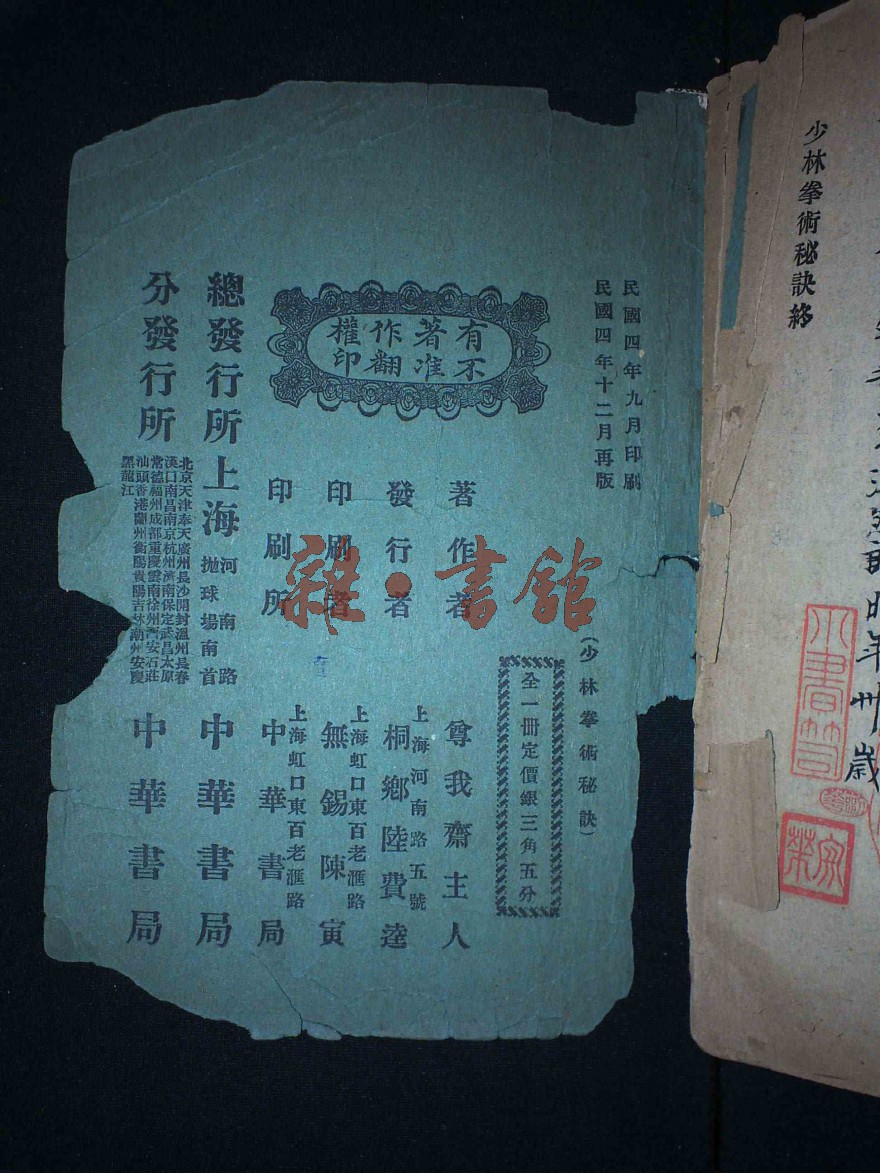 少林拳術秘訣終
民國四年九月印刷
民國四年十二月再版
有著作權
不准翻印
（少林拳術秘訣）
全一冊定價銀三角五分
著作者 尊我齋主人
發行者 上海河南路五號
桐鄉陸費逵
印刷者 上海虹口東百老滙路
無錫陳寅
印刷所 上海虹口東百老滙路
中華書局
總發行所 上海 河南路
拋球場南首 中華書局
分發行所
北京天津奉天廣州長沙開封溫州長春
漢口南昌南京杭州濟南保定武昌太原
常德福州成都重慶雲南徐州西安石莊
汕頭香港蘭州衡陽貴陽吉林潮州安慶
黑龍江
中華書局
雜·書館
年卅歲